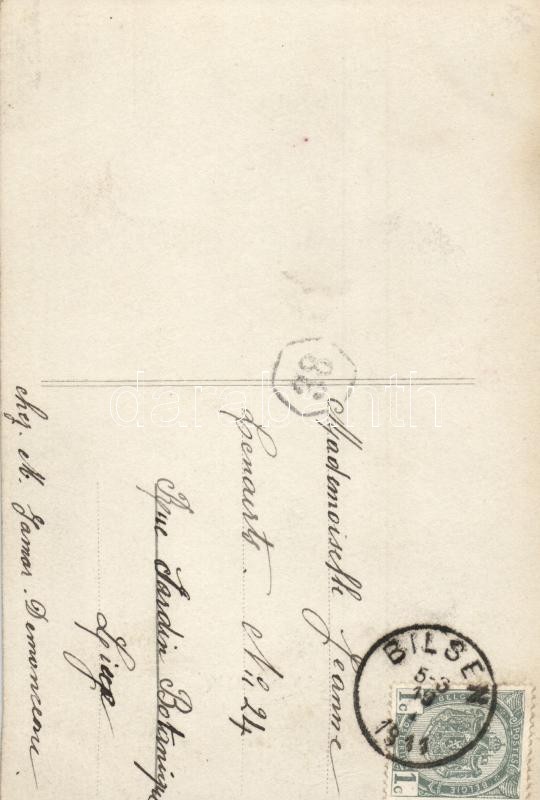 Mademoiselle Jeanne
Lenaerts. N: 24
Rue Jardin Botanique
Liège
chez. M. Jamar. Demonceau
BILSEN
5-3
10
1911
1c 1c
BELGIE
POSTES
darabanth